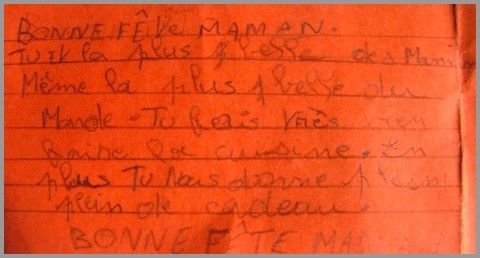 BONNE FÊTE MAMAN.
TU la plus belle des Mam
Même la plus belle du
Monde. Tu fais très
faire la cuisine. En
plus Tu Nous donne plein
plein de cadeau.
BONNE FÊTE MA